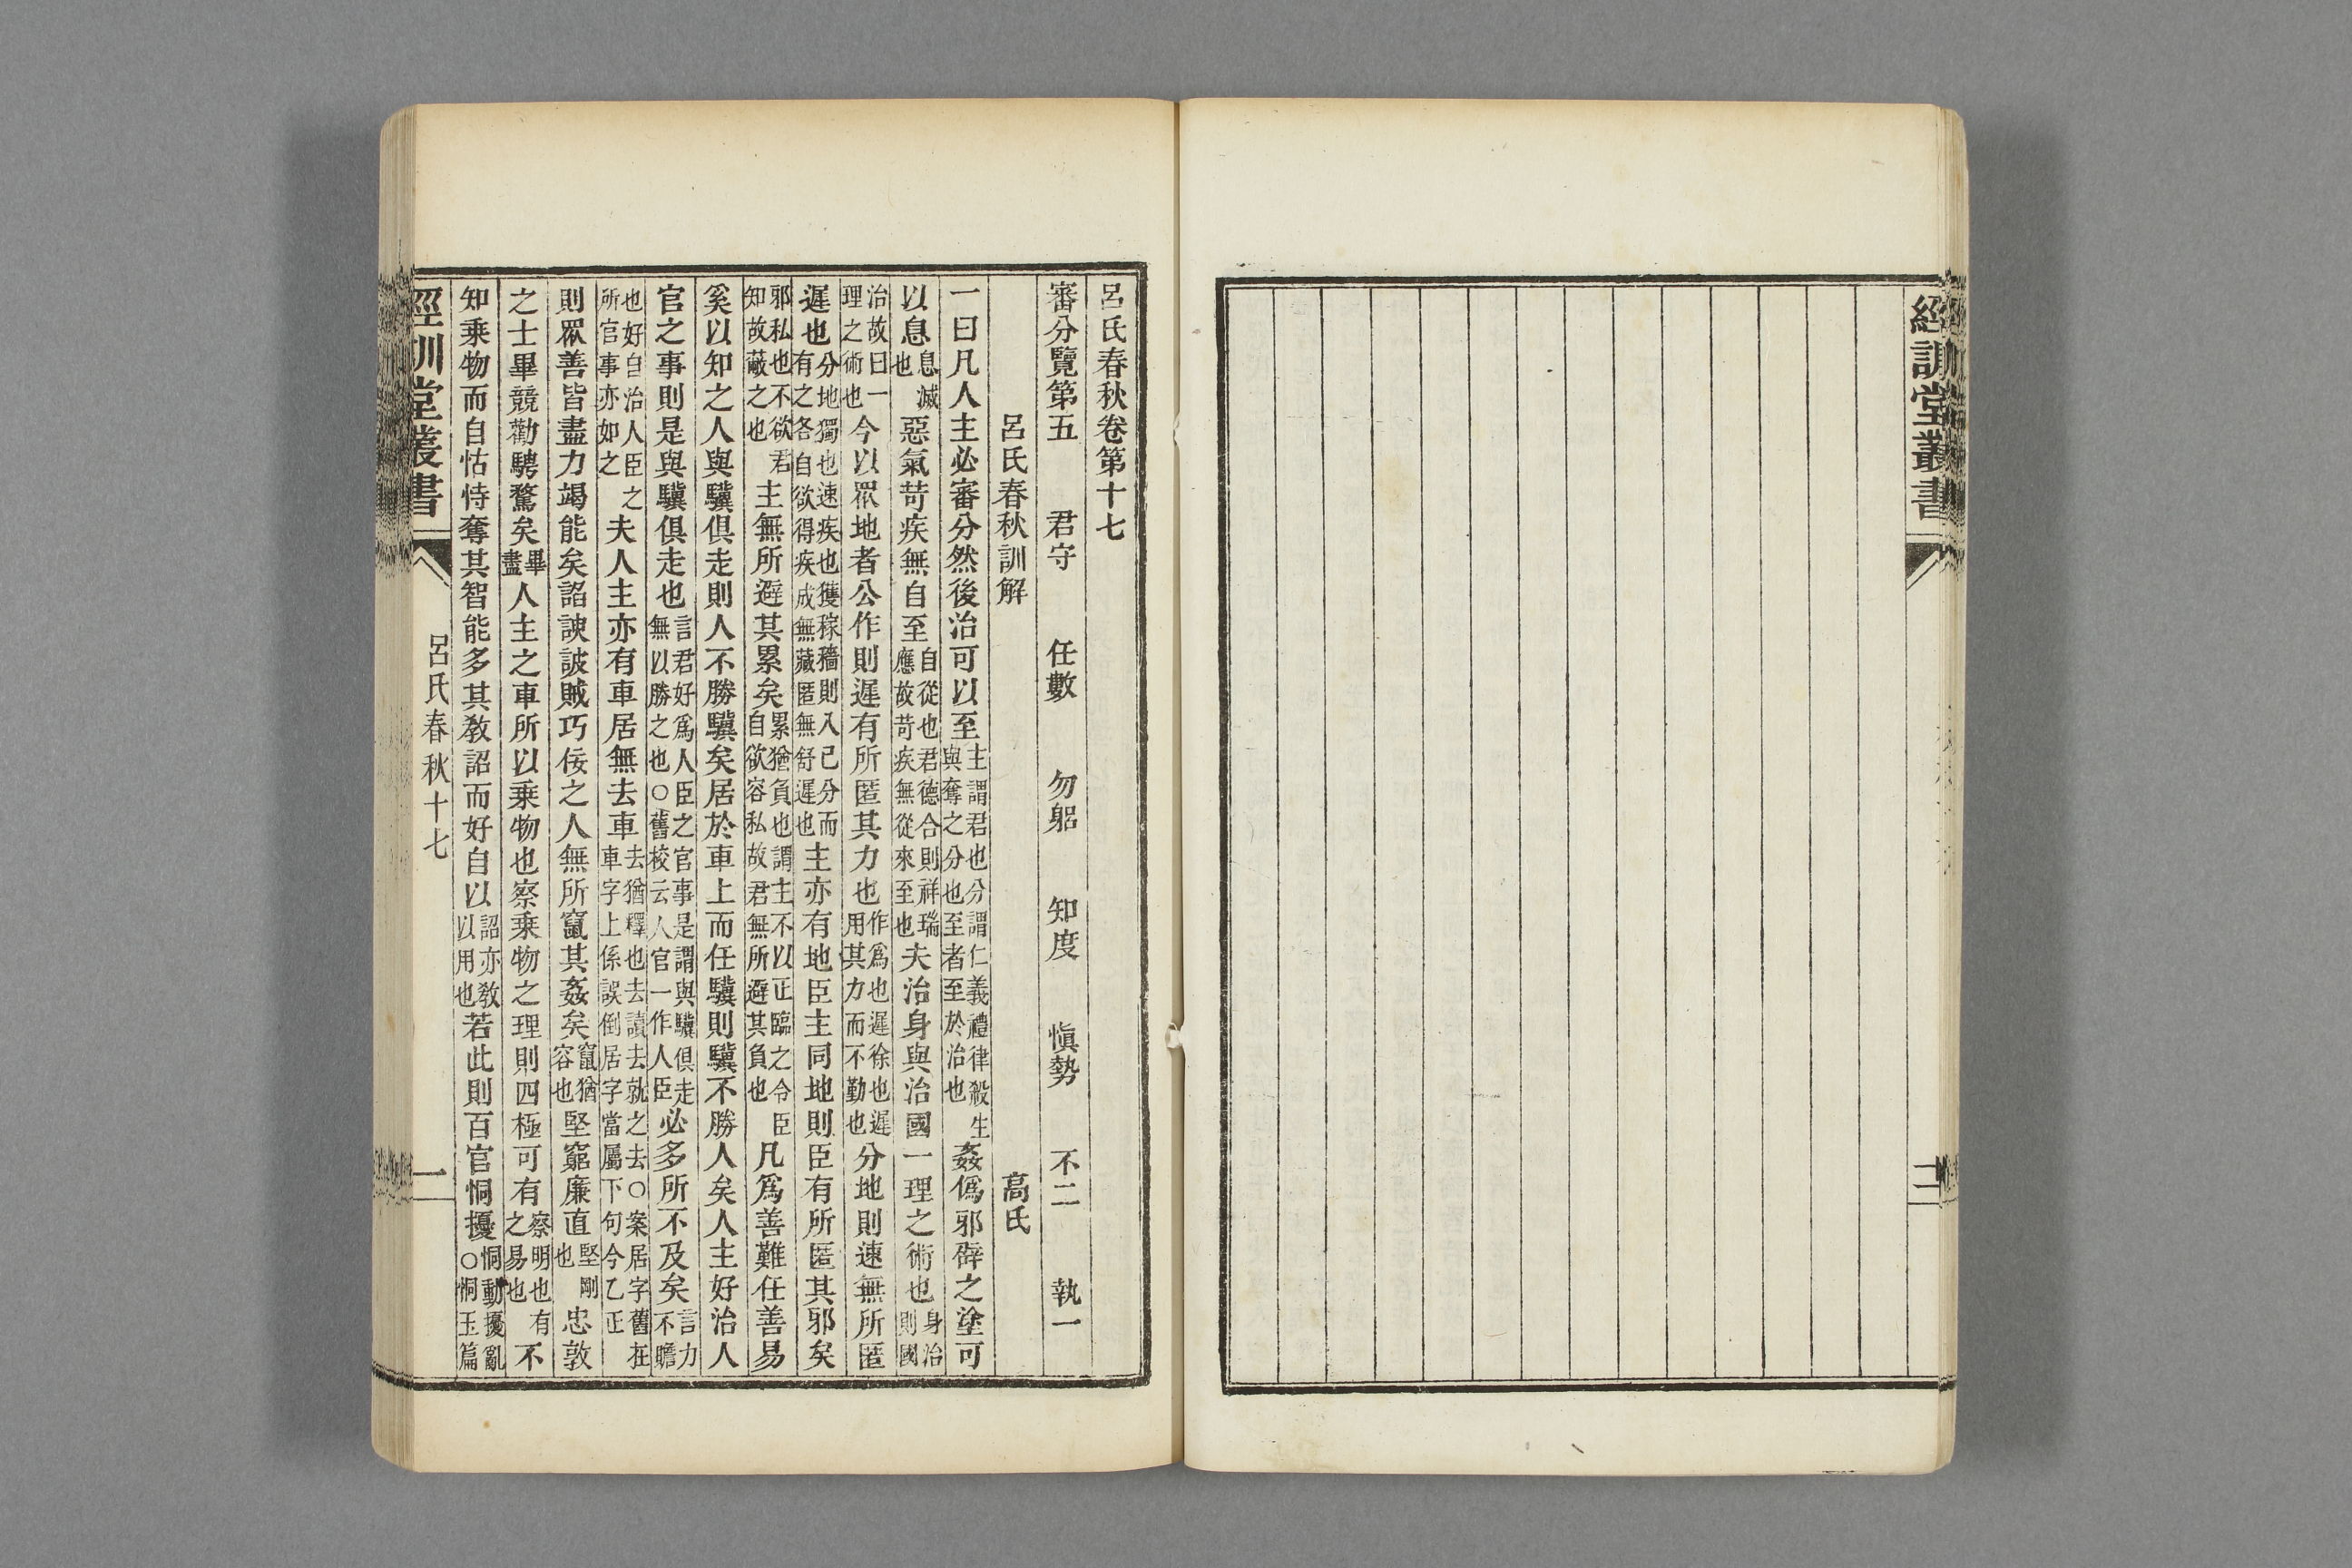 經訓堂叢書　二
呂氏春秋卷第十七
審分覽第五　君守　任數　勿躬　知度　愼勢　不二　執一
呂氏春秋訓解　高氏
一曰凡人主必審分然後治可以至主謂君也分謂仁義禮律殺生與奪之分也至者至於治也姦僞邪辟之塗可
以息息滅也惡氣苛疾無自至自從也君德合則祥瑞應故苛疾無從來至也夫治身與治國一理之術也身治則國
治故曰一理之術也今以眾地者公作則遲有所匿其力也作爲也遲徐也遲用其力而不勤也分地則速無所匿
遲也分地獨也速疾也獲稼穡則入己分而有之各自欲得疾成無藏匿無舒遲也主亦有地臣主同地則臣有所匿其邪矣
邪私也不欲君知故蔽之也主無所避其累矣累猶負也謂主不以正臨之令臣自欲容私故君無所避其負也凡爲善難任善易
奚以知之人與驥俱走則人不勝驥矣居於車上而任驥則驥不勝人矣人主好治人
官之事則是與驥俱走也言君好爲人臣之官事是謂與驥俱走無以勝之也○舊校云人官一作人臣必多所不及矣言力不贍
也好自治人臣之所官事亦如之夫人主亦有車居無去車去猶釋也去讀去就之去○案居字舊在車字上係誤倒居字當屬下句今乙正
則眾善皆盡力竭能矣諂諛詖賊巧佞之人無所竄其姦矣竄猶容也堅窮廉直堅剛也忠敦
之士畢競勸騁騖矣畢盡人主之車所以乘物也察乘物之理則四極可有察明也有之易也不
知乘物而自怙恃奪其智能多其敎詔而好自以詔亦敎以用也若此則百官恫擾恫動擾亂○恫玉篇
經訓堂叢書　呂氏春秋十七　一